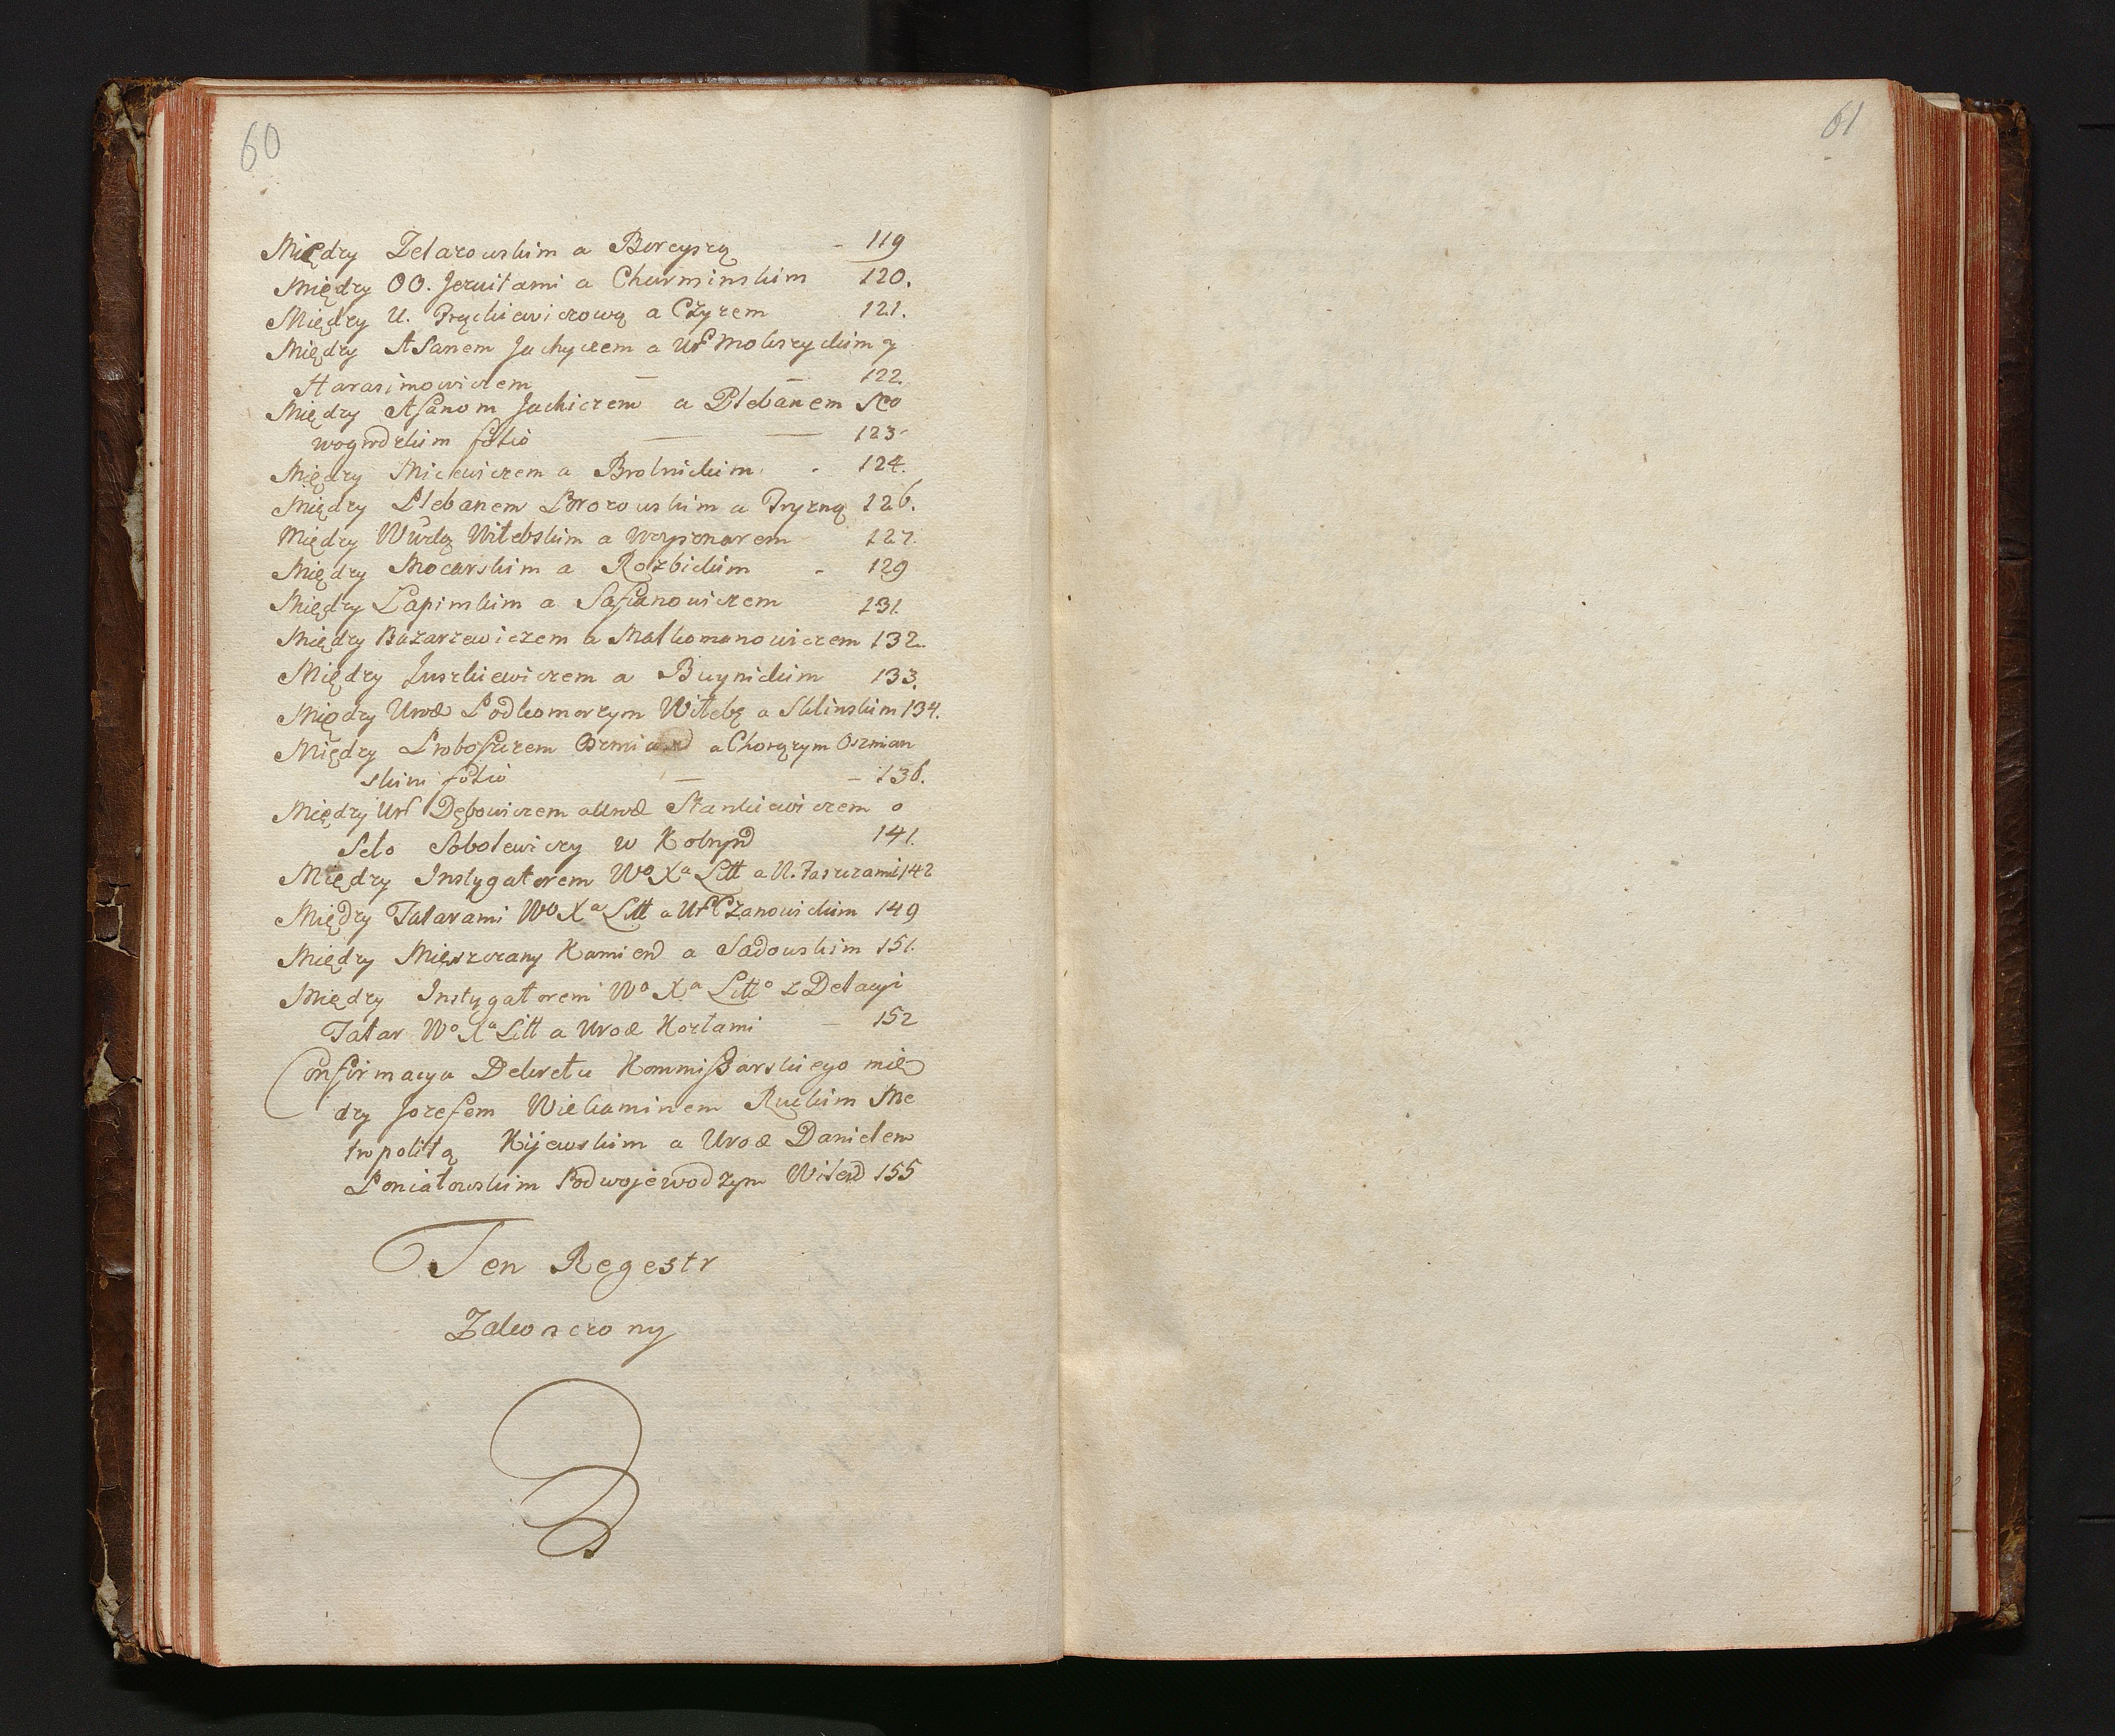 60
61
Między Zelazowskim a Borcyszą - 119
Między OO. Jezuitami a Churminskim 120.
Między U. Frąckiewiczową a Czyzem 121.
Między Asanem Jachyczem a Ur Mokrzyckim y
Harasimowiczem — — 122.
Między Asanom Jachiczem a Plebanem No
wogrodzkim folio — — 123
Między Mickiewiczem a Brolnickim - 124.
Między Plebanem Brozowskim a Fryzną 126.
Między Wdą Witebskim a 127.
Między Mocarskim a Rozbickim - 129
Między Łapinskim a Safianowiczem 131.
Między Bazarzewiczem a Malkomanowiczem 132.
Między Juszkiewiczem a Buynickim 133.
Między Urod Podkomorzym Witebs a Sklinskim 134.
Między Proboszczem Oszmian a Chorązym Oszmian
skim folio — - 136.
Między Ur Dębowiczem a Urod Stankiewiczem o
Seło Sobolewiczy w 141.
Między Instygatorem Wo Xa Litt a N. Jaszczami 142
Między Tatarami Wo Xa Litt a Ur Czanowickim 149
Między Mieszczany Kamien a Sadowskim 151.
Między Instygatorem Wo Xa Litto z Delacyi
Tatar Wo Xa Litt a Urod Kozłami — 152
Confirmacya Dekretu Kommissarskiego mię
dzy Jozefem Wielaminem Ruckim Me
tropolitą Kijewskim a Urod Danielem
Poniatowskim Podwojewodzym Wilen 155
Ten Regestr
Zakonczony